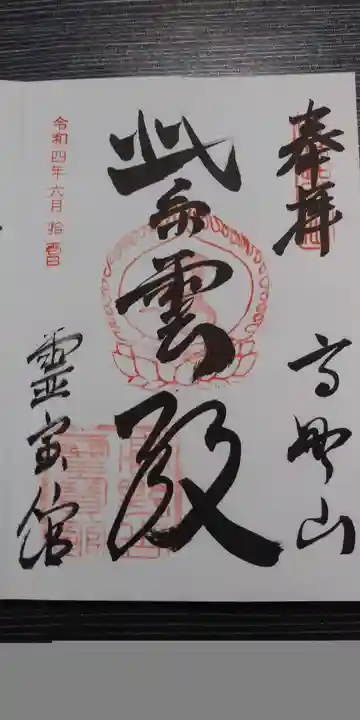 奉拝
高野山
紫雲殿
令和四年六月拾四日
霊宝館